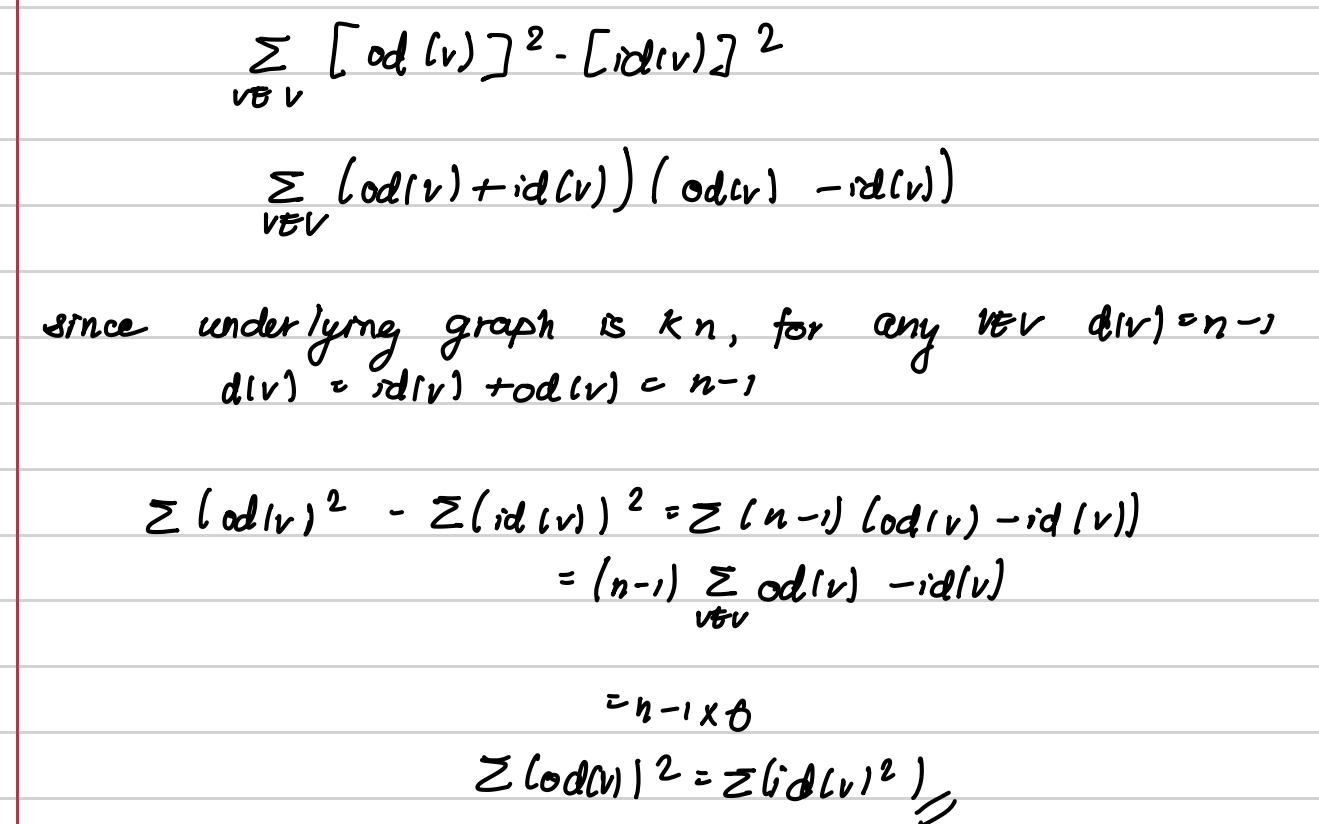 Σ [od (v)]² - [id(v)]²
v∈V
Σ (od(v) + id(v)) (od(v) - id(v))
v∈V
since underlying graph is kn, for any v∈V d(v) = n-1
d(v) = id(v) + od(v) = n-1
Σ (od(v)² - Σ(id(v))² = Σ (n-1) (od(v) - id(v))
= (n-1) Σ od(v) - id(v)
v∈V
= n-1 x 0
Σ(od(v))² = Σ(id(v)²)